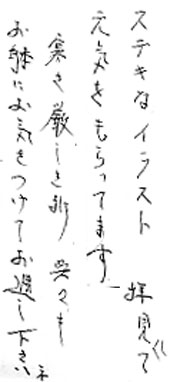 ステキなイラスト 拝見して
元気をもらってます
寒さ厳しき折 呉々も
お躰にお気をつけてお過し下さいネ